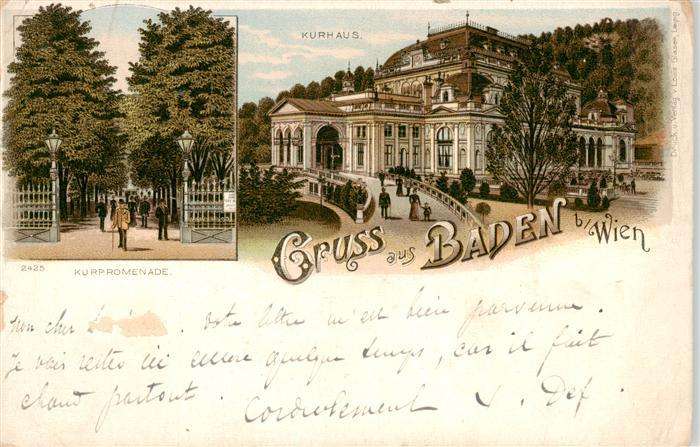 KURHAUS.
Druck u. Verlag v. Louis Glaser, Leipzig
GRUSS aus BADEN b/Wien
2425
KURPROMENADE.
Mon cher votre lettre m'est bien parvenue.
Je vais rester ici encore quelque temps, car il fait
chaud partout. Cordialement